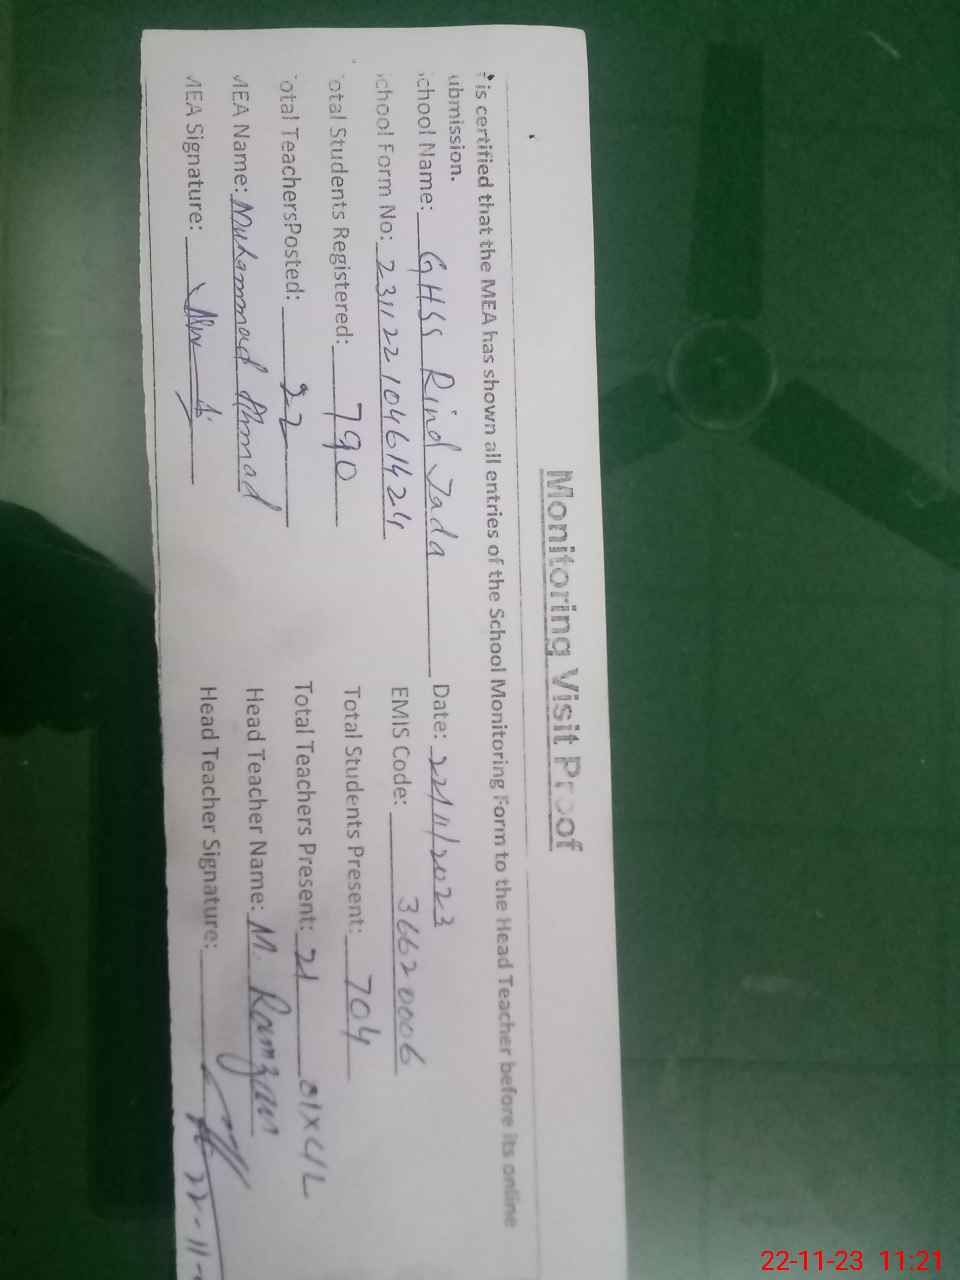 Monitoring Visit Proof
is certified that the MEA has shown all entries of the School Monitoring Form to the Head Teacher before its online
ubmission.
chool Name: GHSS Rind Jada Date: 22/11/2023
chool Form No: 23112210461424 EMIS Code: 36620006
otal Students Registered: 790 Total Students Present: 704
otal TeachersPosted: 22 Total Teachers Present: 21 01xC/L
MEA Name: Muhammad Ahmad Head Teacher Name: M. Ramzan
MEA Signature: Head Teacher Signature:
22-11-
22-11-23 11:21